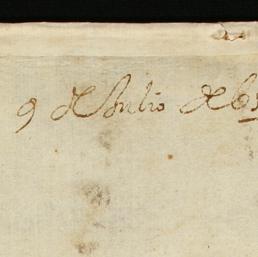 9 de Julio de 6